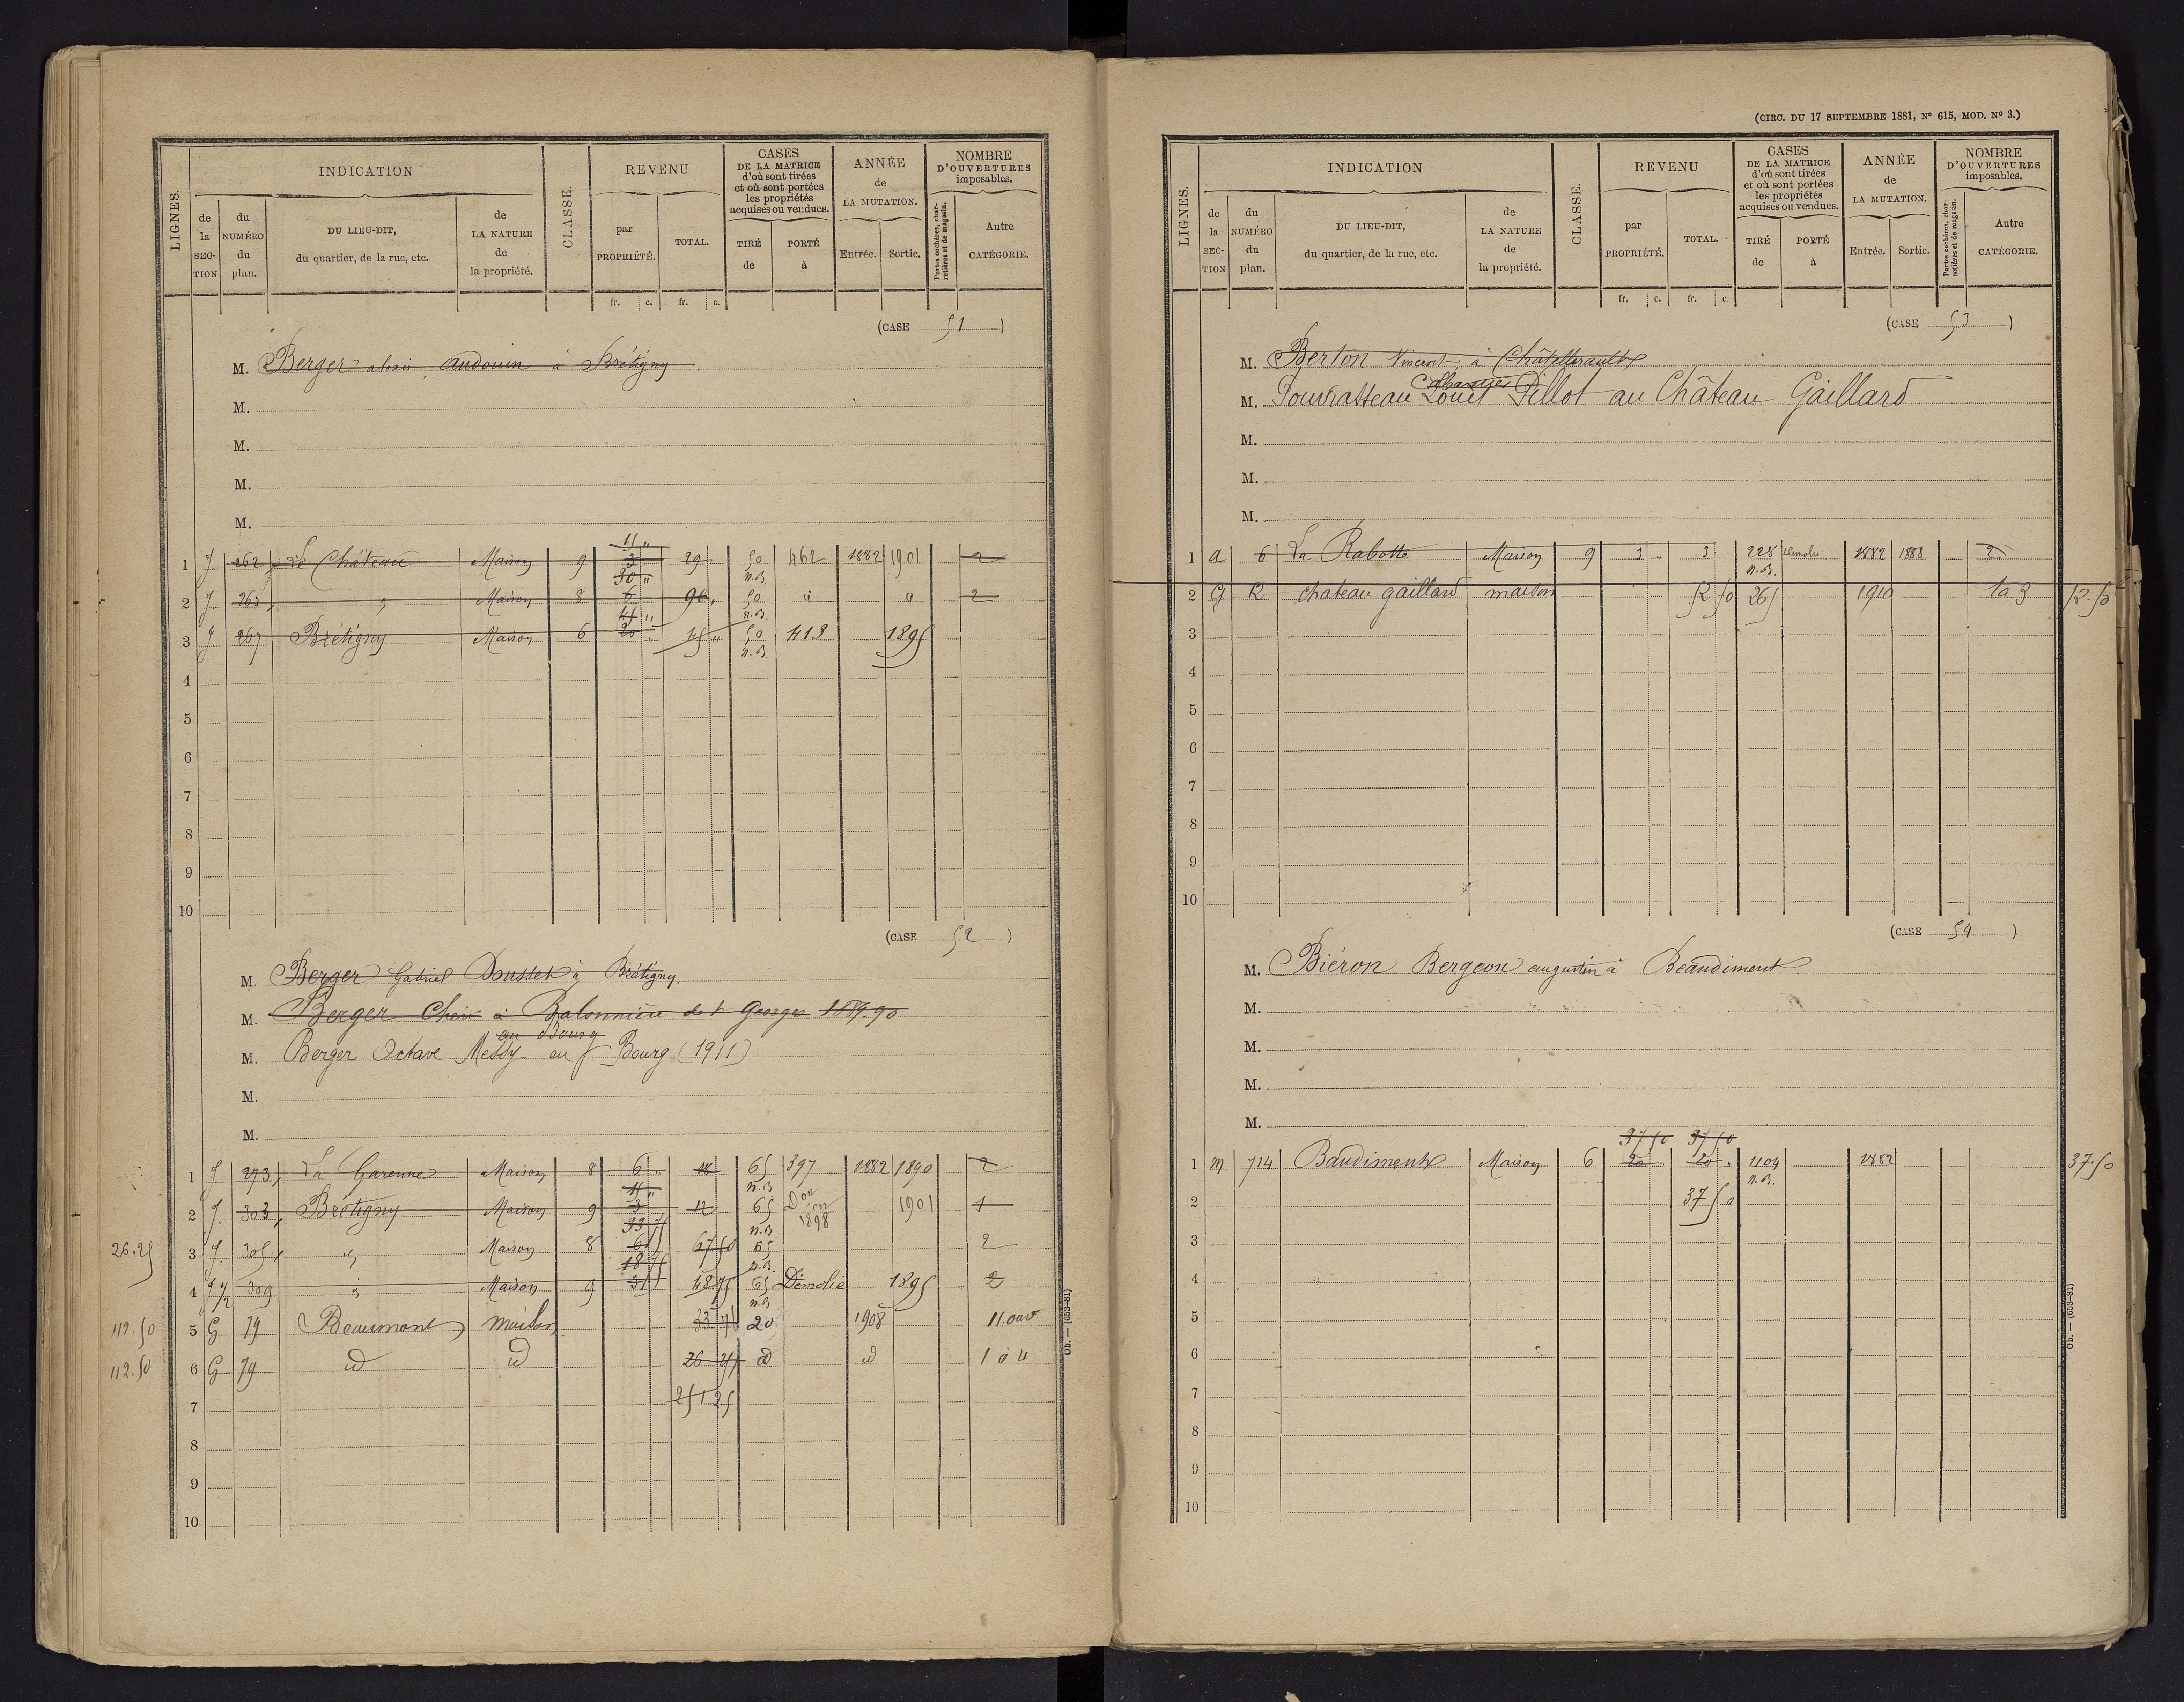 LIGNES.
INDICATION
CLASSE.
REVENU
CASES
DE LA MATRICE
d'où sont tirées
et où sont portées
les propriétés
acquises ou vendues.
ANNÉE
de
LA MUTATION.
NOMBRE
D'OUVERTURES
imposables.
de la SECTION
du NUMÉRO du plan.
DU LIEU-DIT,
du quartier, de la rue, etc.
de LA NATURE de la propriété.
par PROPRIÉTÉ.
TOTAL.
TIRÉ de
PORTÉ à
Entrée.
Sortie.
Portes cochères, charretières et de magasin.
Autre CATÉGORIE.
fr. c. fr. c.
(CASE 51)
M. Berger alexis Audouin à Brétigny
M.
M.
M.
M.
1 J 262 Le Château Maison 9 3 29 50 462 1882 1901 2
30 " n.B.
2 J 263 Maison 8 6 96 50 2
45 " n.B.
3 J 267 Brétigny Maison 6 20 45 " 50 413 1895
n.B.
4
5
6
7
8
9
10
(CASE 52)
M. Berger Gabriel Doussel à Brétigny.
M. Berger à de St Georges 1889.90
au
M. Berger Octave Messy au Bourg (1911)
M.
M.
1 J 273 La Garenne Maison 8 6 18 65 397 1882 1890 2
n.B.
2 J 303 Brétigny Maison 9 3 12 65 1901 1
33 75 n.B. 1898
26.25 3 J 305 Maison 8 6 67 50 65 2
18 75 n.B.
4 J 1/2 309 Maison 9 3 18 75 65 Démolie 1895 2
n.B.
112.50 5 G 79 Beaumont maison 33 75 20 1908 11 ouv
112.50 6 G 79 id id 26 25 id id 1 à 4
7 251 25
8
9
10
Ob. — (653-81)
(CIRC. DU 17 SEPTEMBRE 1881, Nº 615, MOD. Nº 3.)
LIGNES.
INDICATION
CLASSE.
REVENU
CASES
DE LA MATRICE
d'où sont tirées
et où sont portées
les propriétés
acquises ou vendues.
ANNÉE
de
LA MUTATION.
NOMBRE
D'OUVERTURES
imposables.
de la SECTION
du NUMÉRO du plan.
DU LIEU-DIT,
du quartier, de la rue, etc.
de LA NATURE de la propriété.
par PROPRIÉTÉ.
TOTAL.
TIRÉ de
PORTÉ à
Entrée.
Sortie.
Portes cochères, charretières et de magasin.
Autre CATÉGORIE.
fr. c. fr. c.
(CASE 53)
M. Berton Vincent à Châtellerault
M. Louis Pillot au Château Gaillard
M.
M.
M.
1 a 6 La Rabotte Maison 9 3 3 228 Démolie 1882 1883 2
n.B.
2 G 12 chateau gaillard maison 52 50 265 1910 1 a 3 52.50
3
4
5
6
7
8
9
10
(CASE 54)
M. Biéron Bergeon augustin à Beaudiment
M.
M.
M.
M.
37 50 37 50
1 M 714 Baudiment Maison 6 20 20 1104 1882 37.50
n.B.
2 37 50
3
4
5
6
7
8
9
10
Ob. — (653-81)